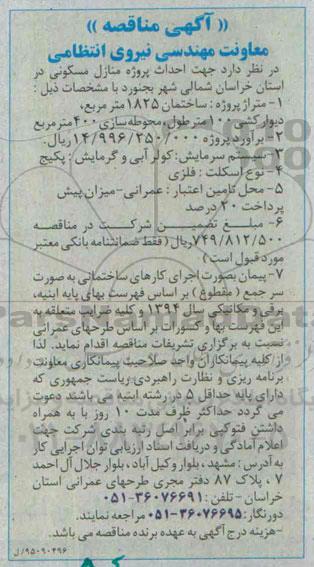 (( آگهی مناقصه ))
معاونت مهندسی نیروی انتظامی
در نظر دارد جهت احداث پروژه منازل مسکونی در
استان خراسان شمالی شهر بجنورد با مشخصات ذیل :
۱- متراژ پروژه : ساختمان ۱۸۲۵ متر مربع،
دیوارکشی ۱۰۰ متر طول، محوطه سازی ۴۰۰ متر مربع
۲- برآورد پروژه ۱۴/۹۹۶/۲۵۰/۰۰۰ ریال.
۳- سیستم سرمایش: کولر آبی و گرمایش : پکیج
۴- نوع اسکلت : فلزی
۵- محل تامین اعتبار : عمرانی-میزان پیش
پرداخت ۲۰ درصد
۶- مبلغ تضمین شرکت در مناقصه
۷۴۹/۸۱۲/۵۰۰ ریال ( فقط ضمانتنامه بانکی معتبر
مورد قبول است )
۷- پیمان بصورت اجرای کارهای ساختمانی به صورت
سر جمع ( مقطوع ) بر اساس فهرست بهای پایه ابنیه،
برقی و مکانیکی سال ۱۳۹۴ و کلیه ضرایب متعلقه به
این فهرست بها و کسورات بر اساس طرحهای عمرانی
نسبت به برگزاری تشریفات مناقصه اقدام نماید. لذا
از کلیه پیمانکاران واجد صلاحیت پیمانکاری معاونت
برنامه ریزی و نظارت راهبردی ریاست جمهوری که
دارای پایه حداقل ۵ در رشته ابنیه می باشند دعوت
می گردد حداکثر ظرف مدت ۱۰ روز با به همراه
داشتن فتوکپی برابر اصل رتبه بندی شرکت جهت
اعلام آمادگی و دریافت اسناد ارزیابی توان اجرایی کار
به آدرس : مشهد ، بلوار وکیل آباد ، بلوار جلال آل احمد
۷ ، پلاک ۸۷ دفتر مجری طرحهای عمرانی استان
خراسان - تلفن : ۳۶۰۷۶۶۹۱-۰۵۱
دورنگار: ۳۶۰۷۶۶۹۵-۰۵۱ مراجعه نمایند.
-هزینه درج آگهی به عهده برنده مناقصه می باشد.
۹۵۰۹۰۴۹۶/ل